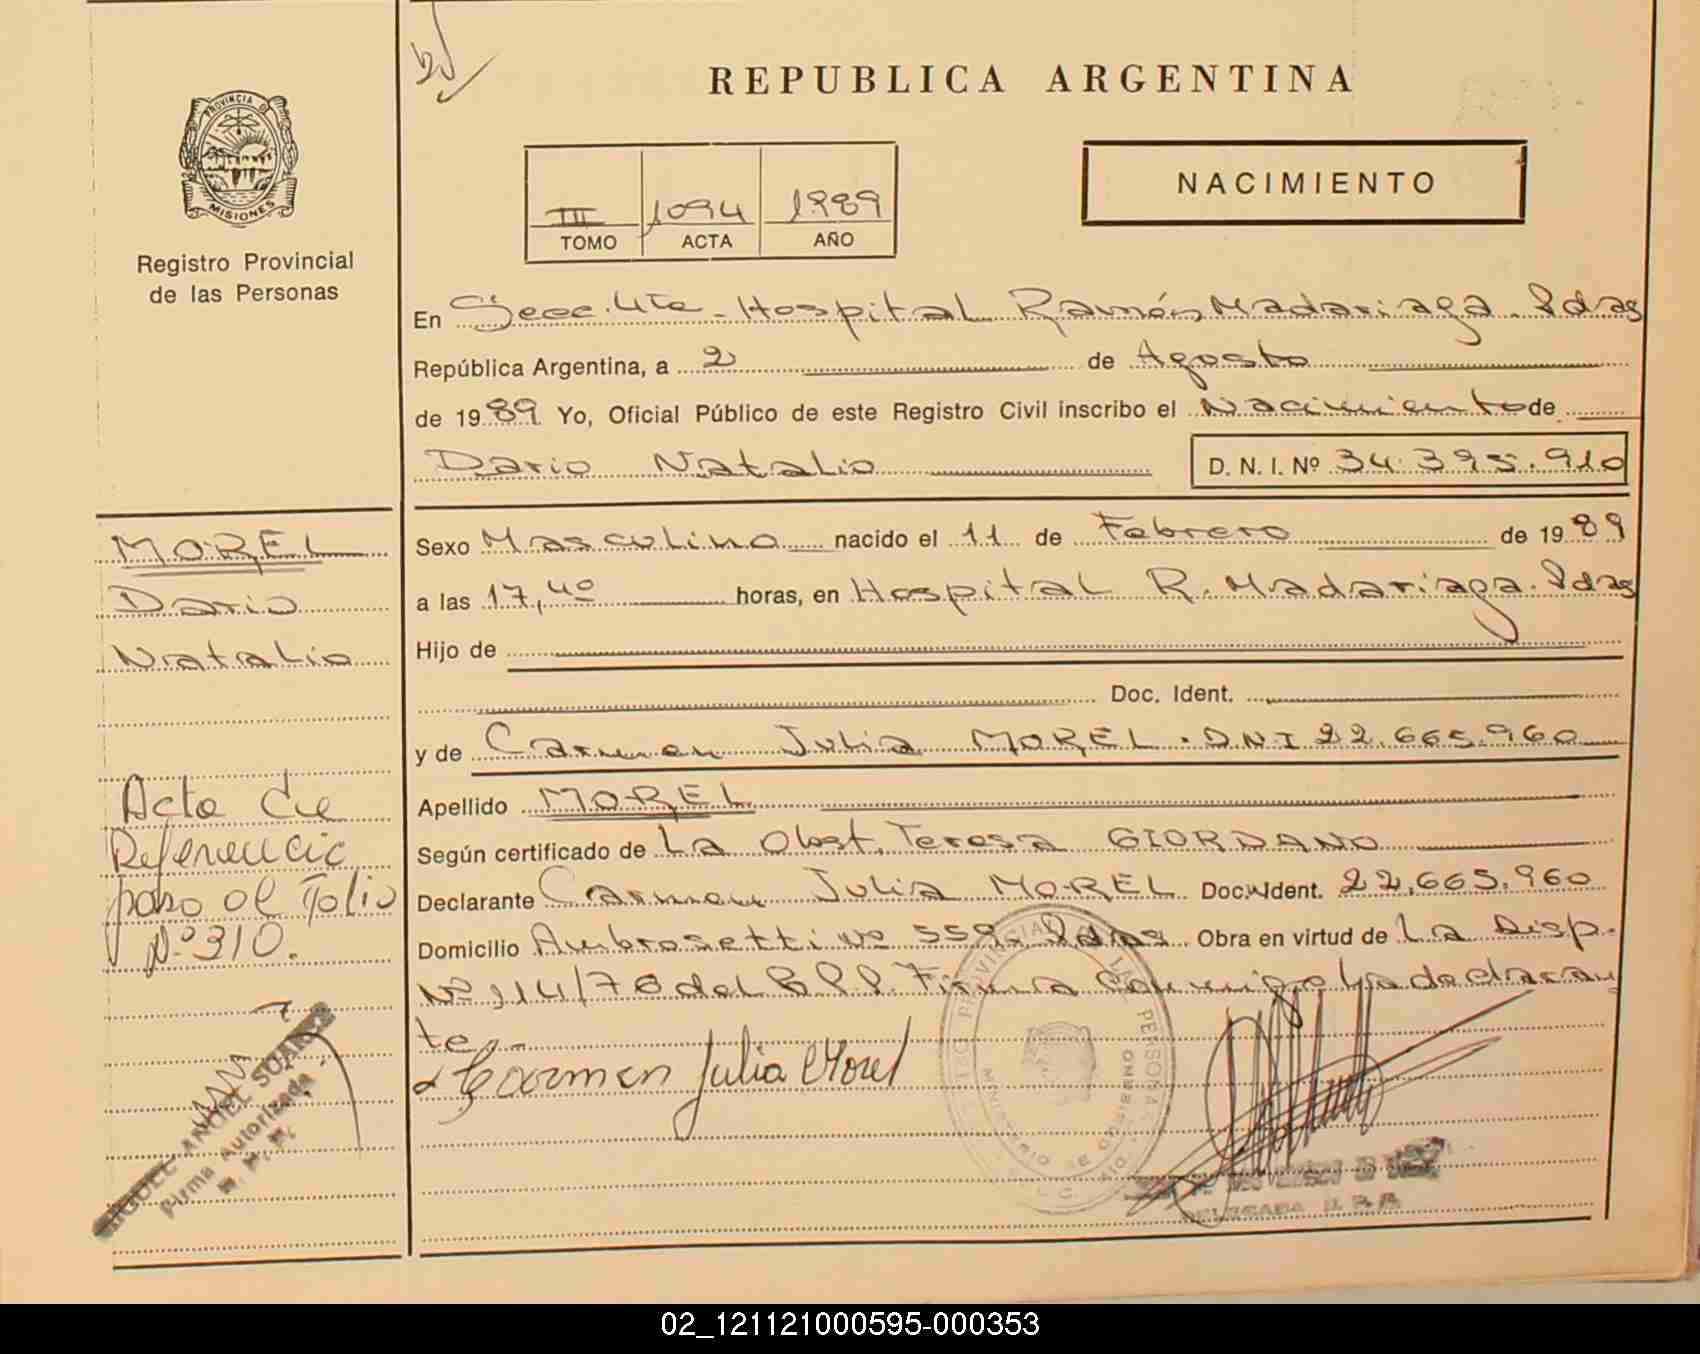 REPUBLICA ARGENTINA
PROVINCIA DE
MISIONES
Registro Provincial
de las Personas
III 1094 1989
TOMO ACTA AÑO
NACIMIENTO
En Secc. 4ta - Hospital Ramón Madariaga. Pdas
República Argentina, a 2 de Agosto
de 1989 Yo, Oficial Público de este Registro Civil inscribo el Nacimiento de
Dario Natalio D. N. I. Nº 34.395.910
MOREL
Dario
Natalio
Sexo Masculino nacido el 11 de Febrero de 1989
a las 17,40 horas, en Hospital R. Madariaga. Pdas
Hijo de
Doc. Ident.
y de Carmen Julia MOREL. DNI 22.665.960
Apellido MOREL
Según certificado de La Obst. Teresa GIORDANO
Declarante Carmen Julia MOREL Doc. Ident. 22.665.960
Domicilio Ambrosetti Nº 559. Pdas. Obra en virtud de La Disp.
Nº 114/78 del R.P.P. Firma Conmigo la declaran
te.-
Carmen Julia Morel
Acta de
Referencia
paso al Folio
Nº 310.
MIGUEL ANGEL SUAREZ
Firma Autorizada
R. P. P.
DELEGADA R. P. P.
02_121121000595-000353